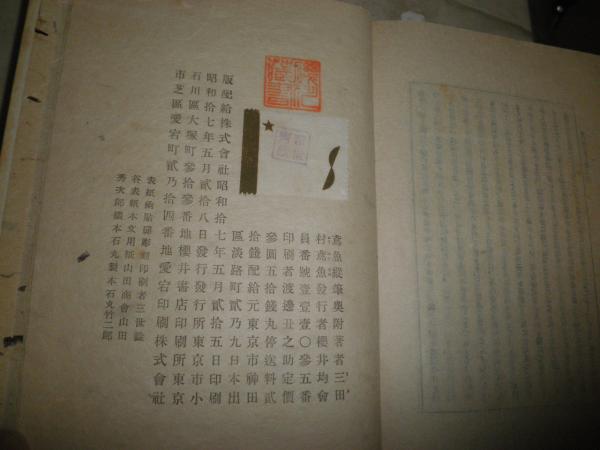 鳶魚縦筆奥附著者三田
村鳶魚發行者櫻井均會
員番號壹壹壹〇參五番
印刷者渡邊丑之助定價
參圓五拾錢丸停送料貳
拾錢配給元東京市神田
區淡路町貳乃九日本出
版配給株式會社昭和拾七年五月貳拾五日印刷
昭和拾七年五月貳拾八日發行發行所東京市小
石川區大塚町參拾參番地櫻井書店印刷所東京
市芝區愛宕町貳乃拾四番地愛宕印刷株式會社
本文用紙山田商會山田
秀次郎製本石丸製本石丸竹二郎